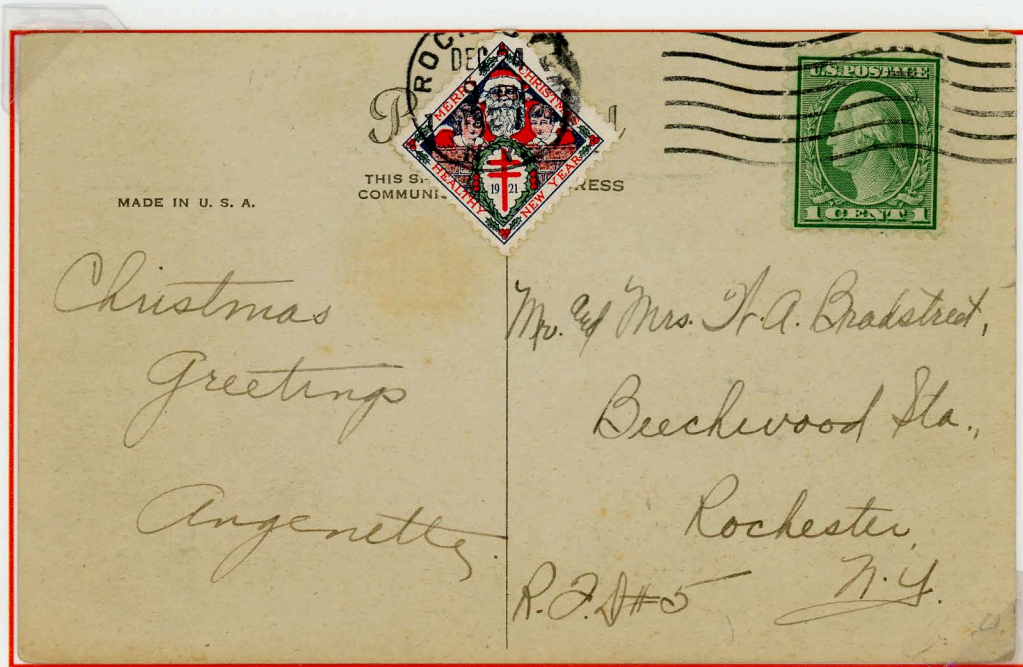 DEC
MERRY CHRISTMAS
HEALTHY NEW YEAR
1921
U.S. POSTAGE
1 CENT 1
THIS
RESS
MADE IN U. S. A.
Christmas
Greetings
Angenette.
Mr. and Mrs. W. A. Bradstreet,
Beechwood Sta.,
Rochester,
N.Y.
R.F.D #5